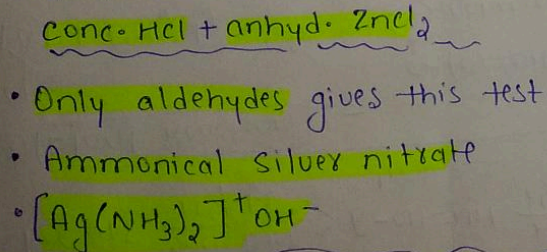 conc. HCl + anhyd. Zncl₂
• Only aldehydes gives this test
• Ammonical silver nitrate
• [Ag(NH₃)₂]⁺OH⁻